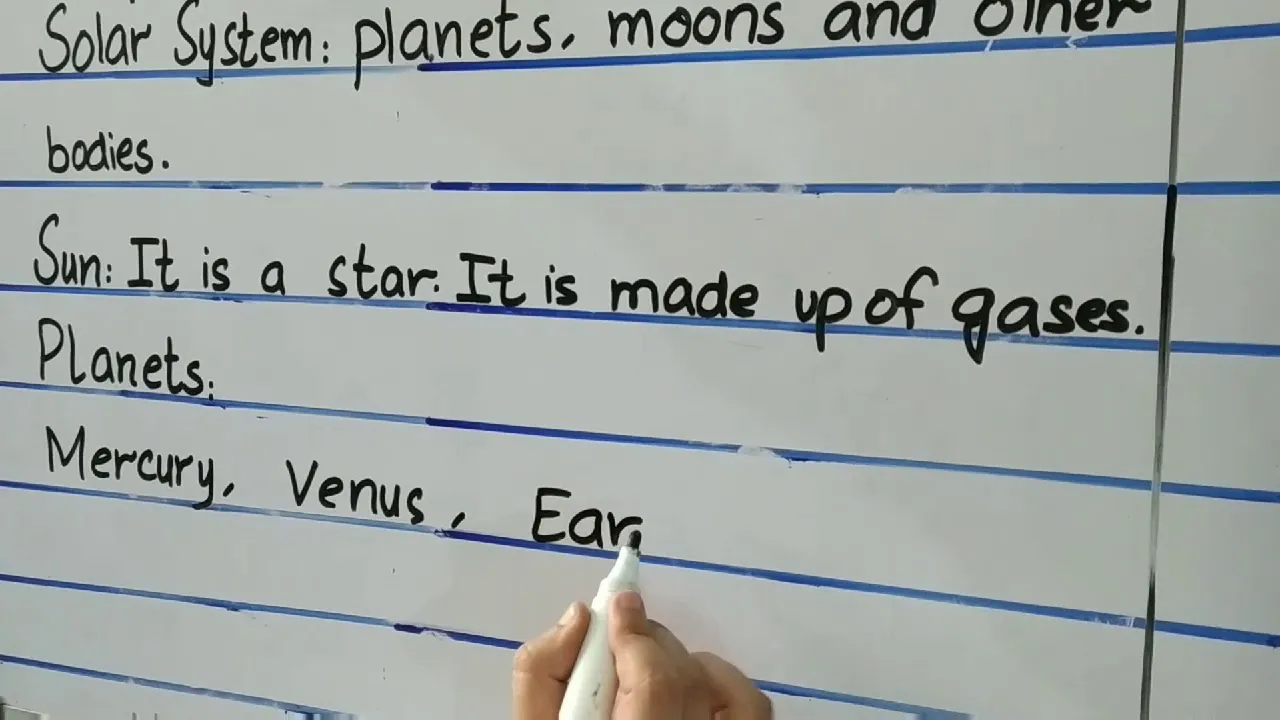 Solar System: planets, moons and other
bodies.
Sun: It is a star. It is made up of gases.
Planets:
Mercury, Venus, Ear